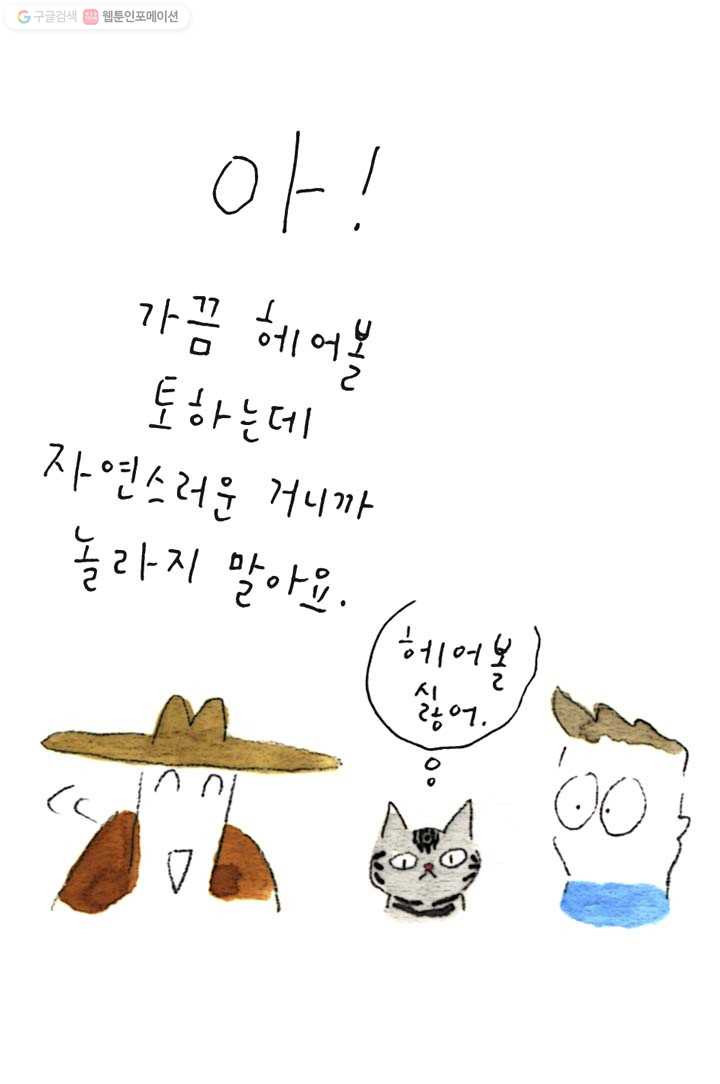 구글검색 웹툰인포메이션
아!
가끔 헤어볼
토하는데
자연스러운 거니까
놀라지 말아요.
헤어볼
싫어.